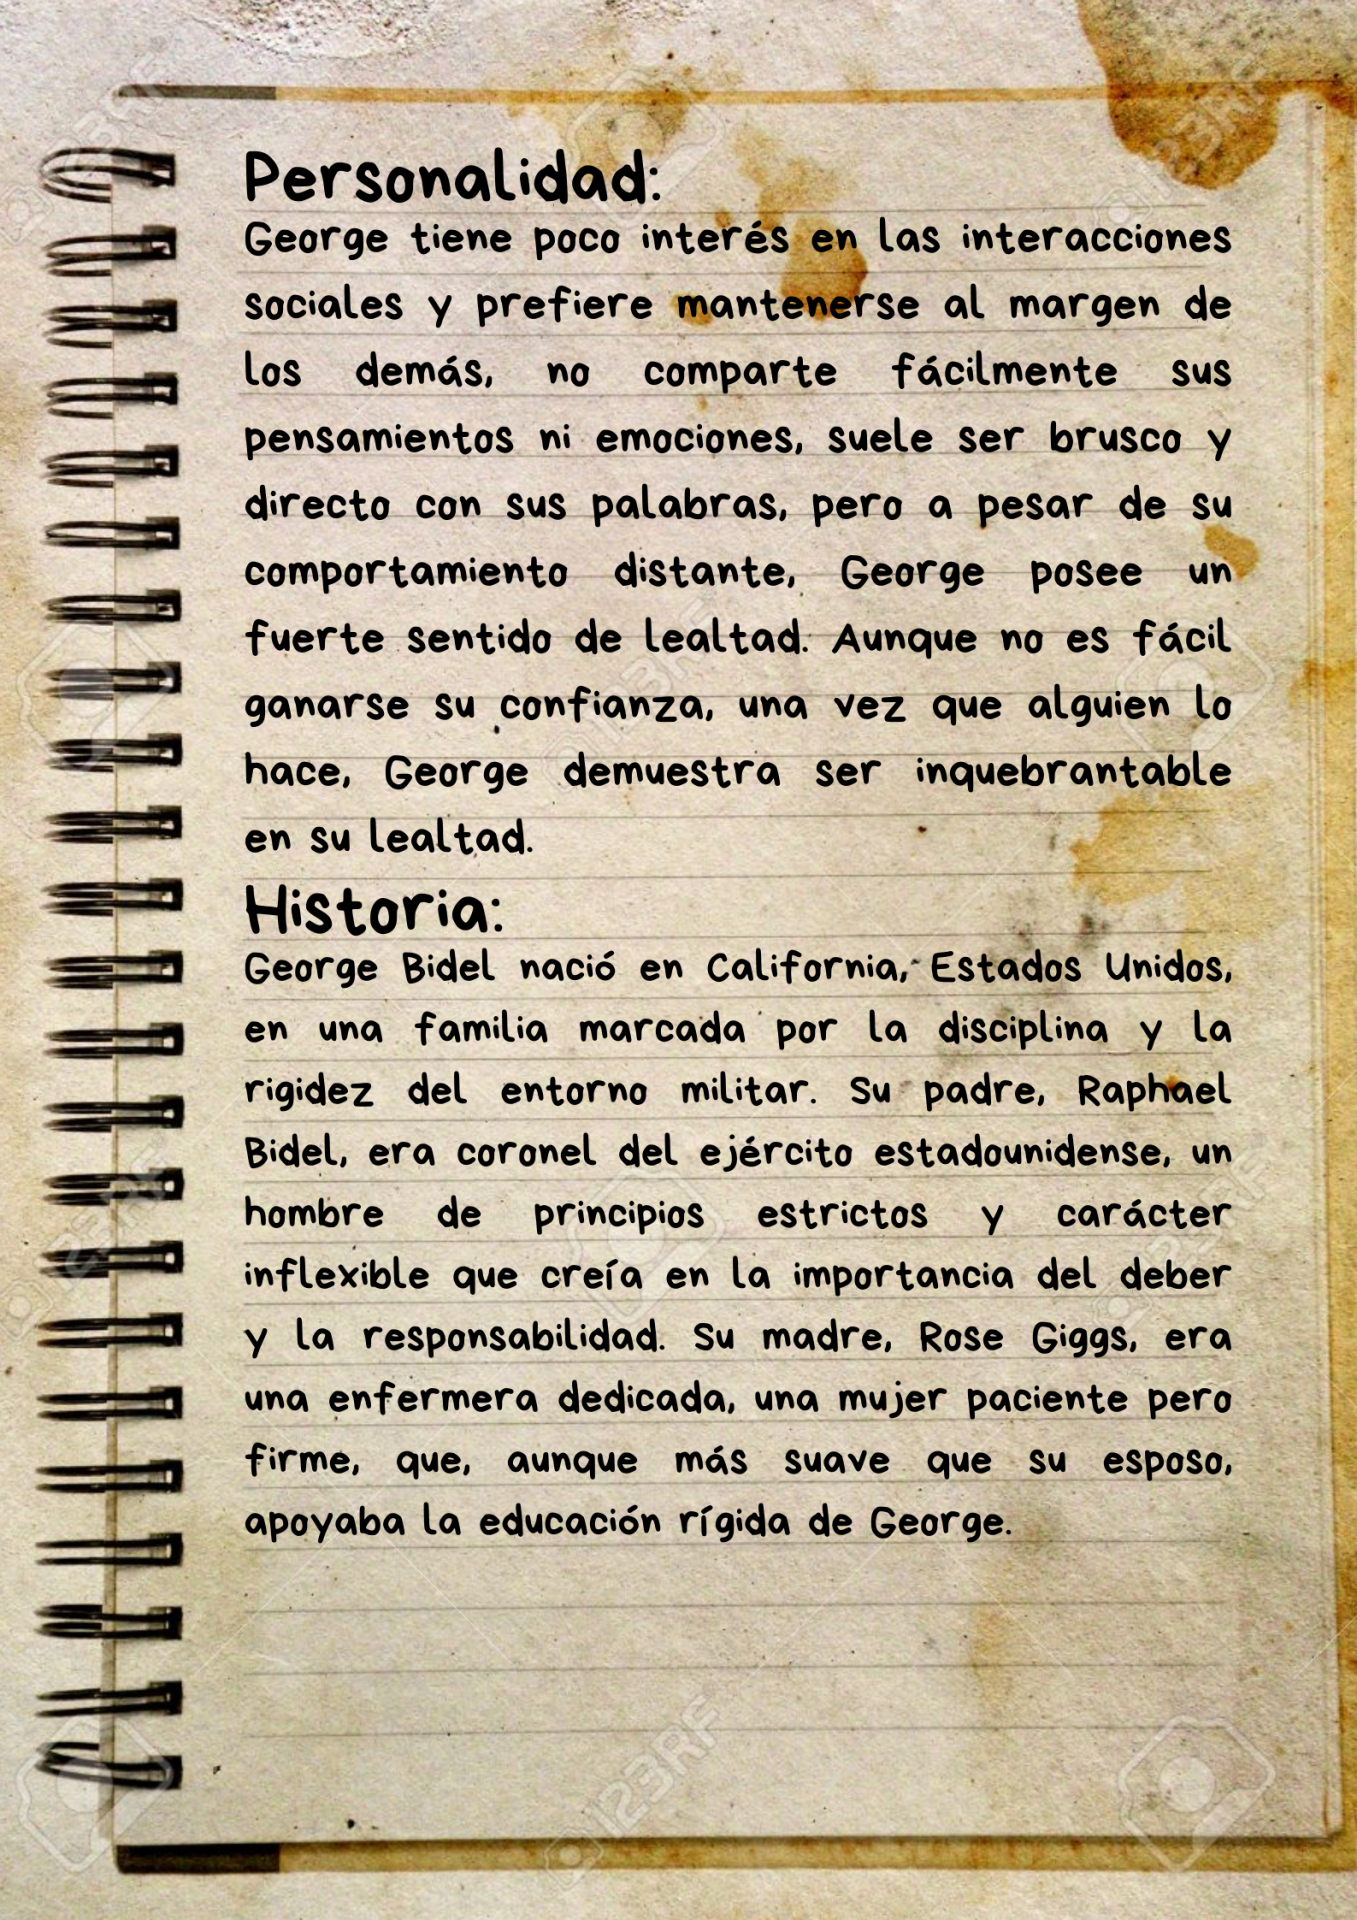 Personalidad:
George tiene poco interés en las interacciones
sociales y prefiere mantenerse al margen de
los demás, no comparte fácilmente sus
pensamientos ni emociones, suele ser brusco y
directo con sus palabras, pero a pesar de su
comportamiento distante, George posee un
fuerte sentido de lealtad. Aunque no es fácil
ganarse su confianza, una vez que alguien lo
hace, George demuestra ser inquebrantable
en su lealtad.
Historia:
George Bidel nació en California, Estados Unidos,
en una familia marcada por la disciplina y la
rigidez del entorno militar. Su padre, Raphael
Bidel, era coronel del ejército estadounidense, un
hombre de principios estrictos y carácter
inflexible que creía en la importancia del deber
y la responsabilidad. Su madre, Rose Giggs, era
una enfermera dedicada, una mujer paciente pero
firme, que, aunque más suave que su esposo,
apoyaba la educación rígida de George.
123RF
123RF
123RF
123RF
123RF
123RF
123RF
123RF